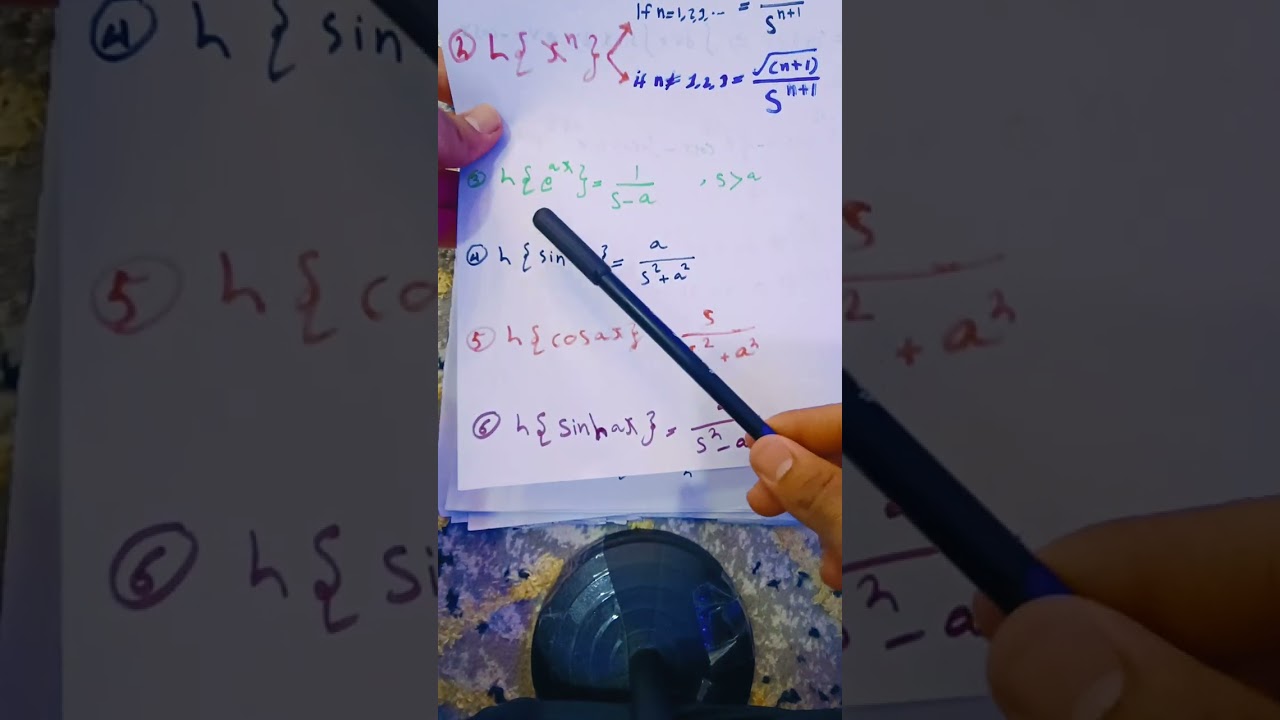 If n=1,2,3,... = / S^{n+1}
② L{x^n}
if n≠ 1,2,3 = √(n+1) / S^{n+1}
③ L{e^{ax}} = 1 / (S-a) , s>a
④ L{sin } = a / (s²+a²)
⑤ L{cosax} s / ² + a²
⑥ L{sinhax} = / s² - a